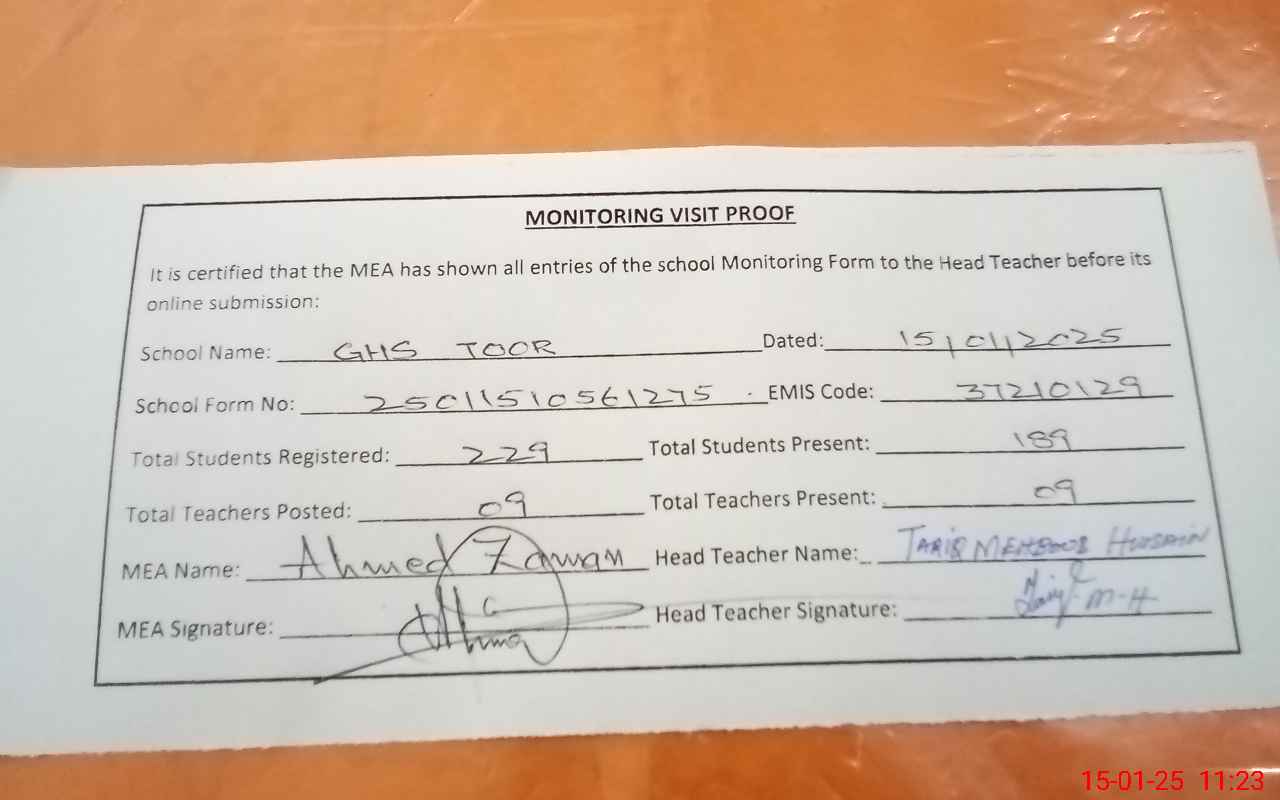 MONITORING VISIT PROOF
It is certified that the MEA has shown all entries of the school Monitoring Form to the Head Teacher before its
online submission:
School Name: GHS TOOR Dated: 15/01/2025
School Form No: 25011510561275 EMIS Code: 37210129
Total Students Registered: 229 Total Students Present: 189
Total Teachers Posted: 09 Total Teachers Present: 09
MEA Name: Ahmed Zaman Head Teacher Name: TARIQ MEHBOOB HUSSAIN
MEA Signature: Head Teacher Signature: Tariq M-H
15-01-25 11:23